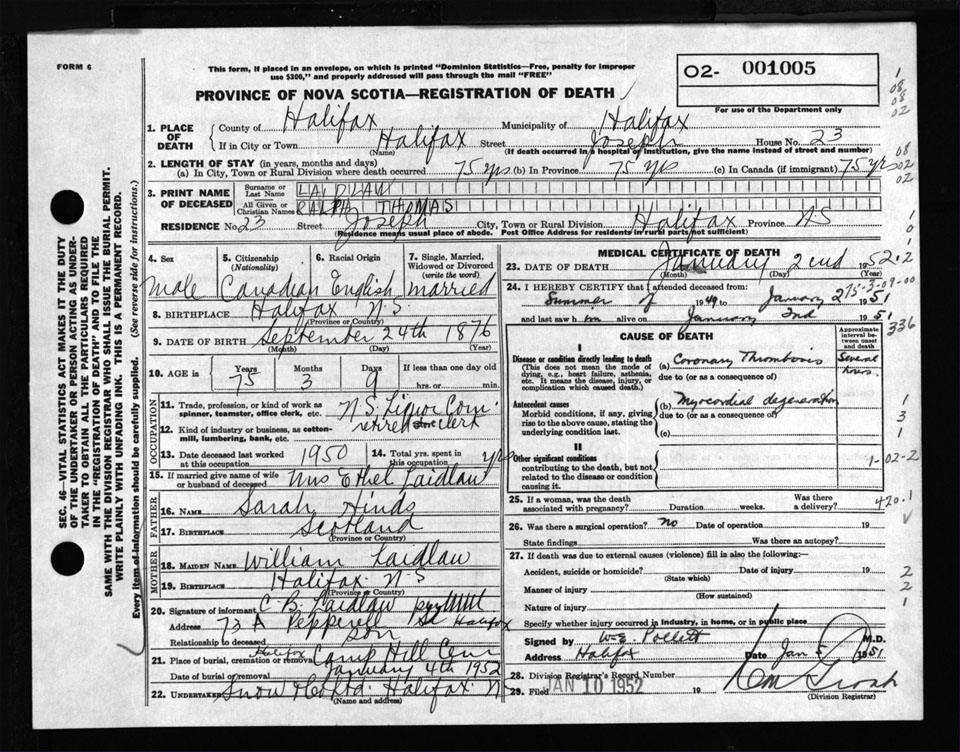 FORM 6
This form, if placed in an envelope, on which is printed "Dominion Statistics—Free, penalty for improper
use $300," and properly addressed will pass through the mail "FREE"
PROVINCE OF NOVA SCOTIA—REGISTRATION OF DEATH
02- 001005
For use of the Department only
1. PLACE OF DEATH
County of Halifax Municipality of Halifax
If in City or Town Halifax Street Joseph House No. 23
(Name) (If death occurred in a hospital or institution, give the name instead of street and number)
2. LENGTH OF STAY (in years, months and days)
(a) In City, Town or Rural Division where death occurred 75 yrs (b) In Province 75 yrs (c) In Canada (if immigrant) 75 yrs
3. PRINT NAME OF DECEASED
Surname or Last Name LAIDLAW
All Given or Christian Names RALPH THOMAS
RESIDENCE No. 23 Street Joseph City, Town or Rural Division Halifax Province N.S
(Residence means usual place of abode. Post Office Address for residents in rural parts not sufficient)
4. Sex Male
5. Citizenship (Nationality) Canadian
6. Racial Origin English
7. Single, Married, Widowed or Divorced (write the word) married
8. BIRTHPLACE Halifax N.S.
(Province or Country)
9. DATE OF BIRTH September 24th 1876
(Month) (Day) (Year)
10. AGE in Years 75 Months 3 Days 9 If less than one day old
hrs. or min.
OCCUPATION
11. Trade, profession, or kind of work as spinner, teamster, office clerk, etc. N S Liquor Com
12. Kind of industry or business, as cotton-mill, lumbering, bank, etc. retired store clerk
13. Date deceased last worked at this occupation 1950
14. Total yrs. spent in this occupation yrs
15. If married give name of wife or husband of deceased Mrs Ethel Laidlaw
FATHER
16. NAME Sarah Hinds
17. BIRTHPLACE Scotland
(Province or Country)
MOTHER
18. MAIDEN NAME William Laidlaw
19. BIRTHPLACE Halifax N S
(Province or Country)
20. Signature of informant C. B. Laidlaw
Address 73 A Pepperell St Halifax
Relationship to deceased son
21. Place of burial, cremation or removal Halifax Camp Hill Cem
Date of burial or removal January 4th 1952
22. Undertaker Snow & Co Ltd. Halifax N S
(Name and address)
MEDICAL CERTIFICATE OF DEATH
23. DATE OF DEATH January 2nd 1952
(Month) (Day) (Year)
24. I HEREBY CERTIFY that I attended deceased from:
Summer of 1949 to January 2 1951
and last saw him alive on January 2nd 1951
CAUSE OF DEATH
Approximate interval between onset and death
I
Disease or condition directly leading to death
(This does not mean the mode of dying, e.g., heart failure, asthenia, etc. It means the disease, injury, or complication which caused death.)
(a) Coronary Thrombosis Several hours.
due to (or as a consequence of)
Antecedent causes
Morbid conditions, if any, giving rise to the above cause, stating the underlying condition last.
(b) Myocardial degeneration
due to (or as a consequence of)
(c)
II
Other significant conditions
contributing to the death, but not related to the disease or condition causing it
25. If a woman, was the death associated with pregnancy? Duration weeks. Was there a delivery?
26. Was there a surgical operation? no Date of operation 19
State findings Was there an autopsy?
27. If death was due to external causes (violence) fill in also the following:—
Accident, suicide or homicide? Date of injury 19
(State which)
Manner of injury
(How sustained)
Nature of injury
Specify whether injury occurred in industry, in home, or in public place
Signed by W. E. Pollett M.D.
Address Halifax Date Jan 1951
28. Division Registrar's Record Number
29. Filed JAN 10 1952 19
(Division Registrar)
SEC. 46—VITAL STATISTICS ACT MAKES IT THE DUTY
OF THE UNDERTAKER OR PERSON ACTING AS UNDERTAKER TO OBTAIN ALL THE PARTICULARS REQUIRED
IN THE "REGISTRATION OF DEATH" AND TO FILE THE
SAME WITH THE DIVISION REGISTRAR WHO SHALL ISSUE THE BURIAL PERMIT.
WRITE PLAINLY WITH UNFADING INK. THIS IS A PERMANENT RECORD.
Every item of information should be carefully supplied. (See reverse side for instructions.)
336
420.1